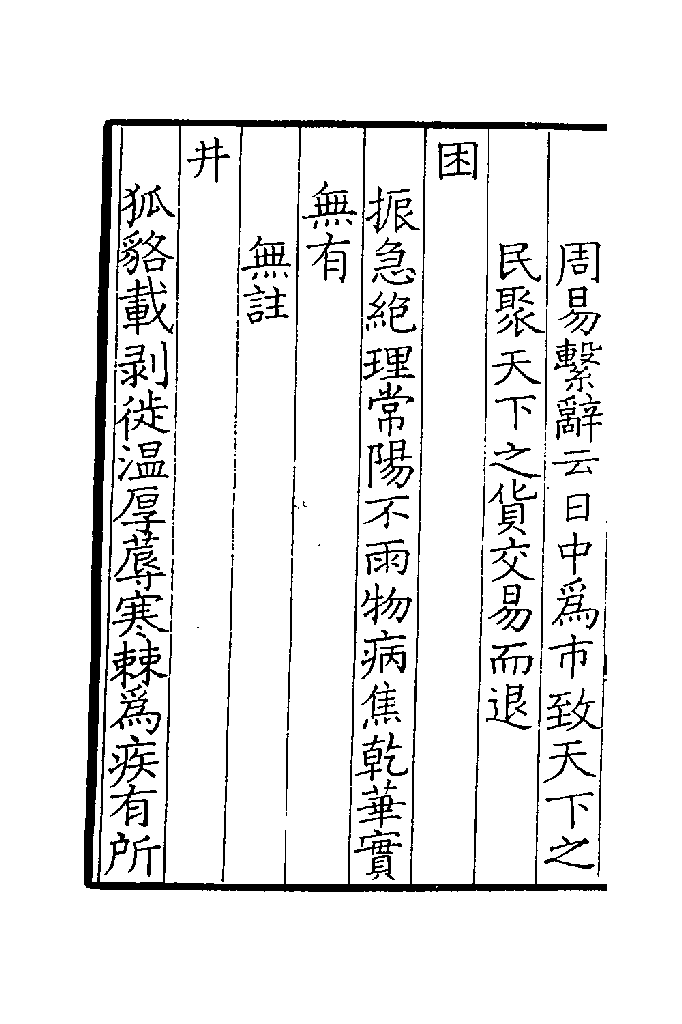 周易繫辭云日中為市致天下之
民聚天下之貨交易而退
困
振急絶理常陽不雨物病焦乾華實
無有
無註
井
狐貉載剥徙温厚蓐寒棘為疾有所